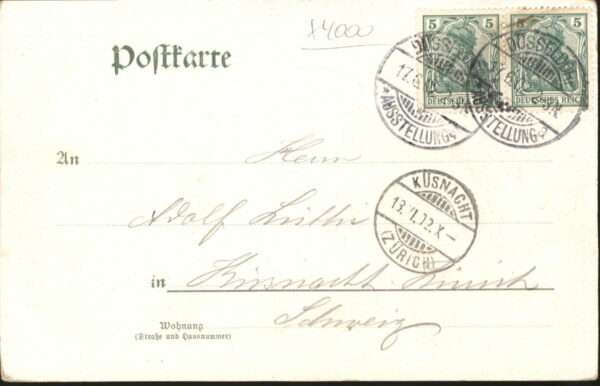 x4000
5 5 5 5
Postkarte
DÜSSELDORF
17.6.
AUSSTELLUNG
DEUTSCHES REICH
DÜSSELDORF
AUSSTELLUNG
DEUTSCHES REICH
An Herrn
KÜSNACHT
(ZÜRICH)
Adolf Lüthi
in Küsnacht Zürich
Schweiz
Wohnung
(Straße und Hausnummer)